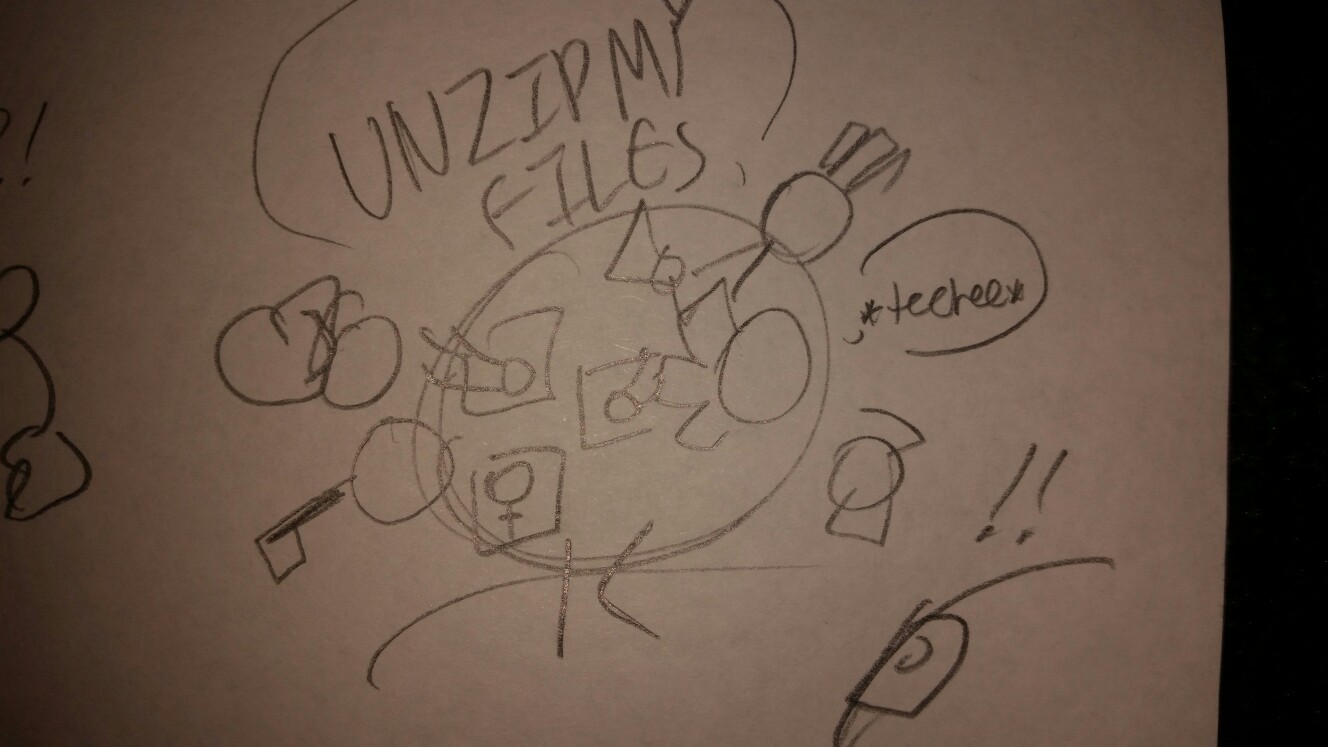 UNZIP MY
FILES
*teehee*
!!